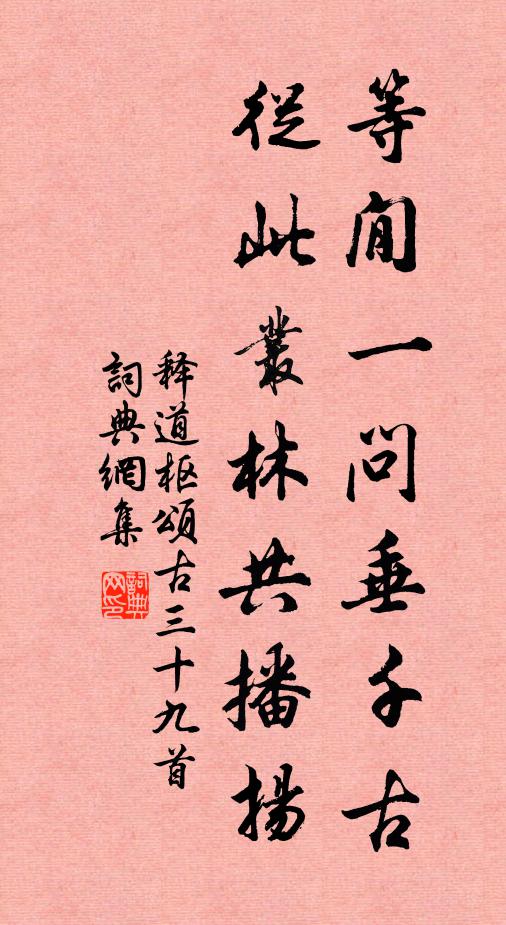 等閒一問垂千古
從此叢林共播揚
释道枢頌古三十九首
詞典網集
詞典网印